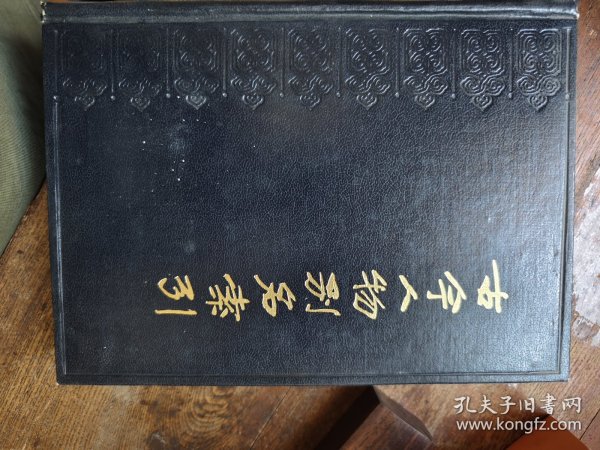 古今人物别名索引
孔夫子旧书网
www.kongfz.com